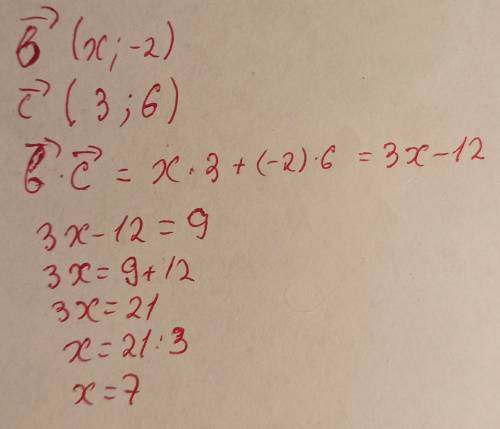 b⃗ (x; -2)
c⃗ (3; 6)
b⃗ · c⃗ = x · 3 + (-2) · 6 = 3x - 12
3x - 12 = 9
3x = 9 + 12
3x = 21
x = 21 : 3
x = 7